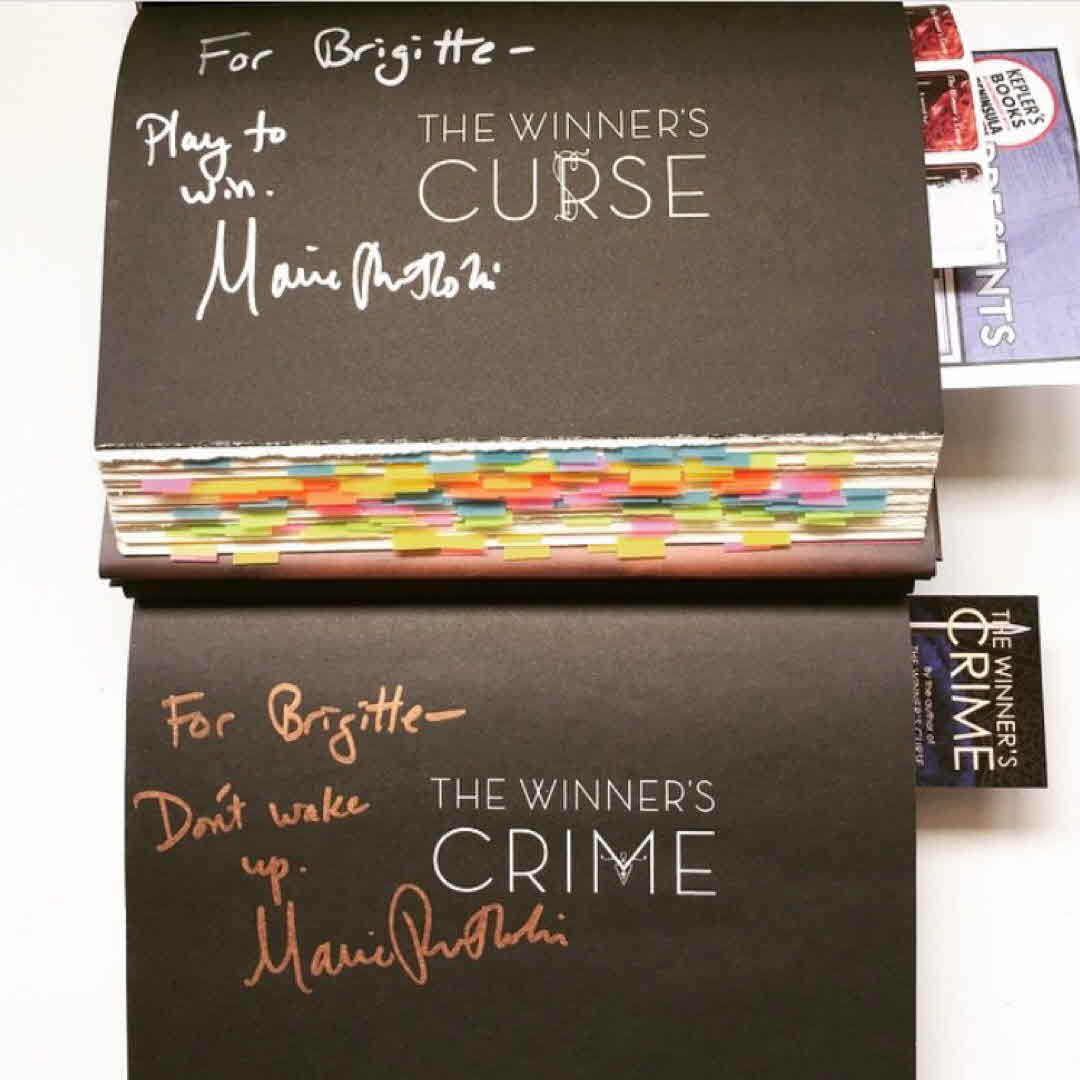 For Brigitte –
Play to
win.
Marie Rutkoski
THE WINNER'S
CURSE
KEPLER'S
BOOKS
PENINSULA
PRESENTS
For Brigitte –
Don't wake
up.
Marie Rutkoski
THE WINNER'S
CRIME
THE WINNER'S
CRIME
By the author of
THE WINNER'S CURSE